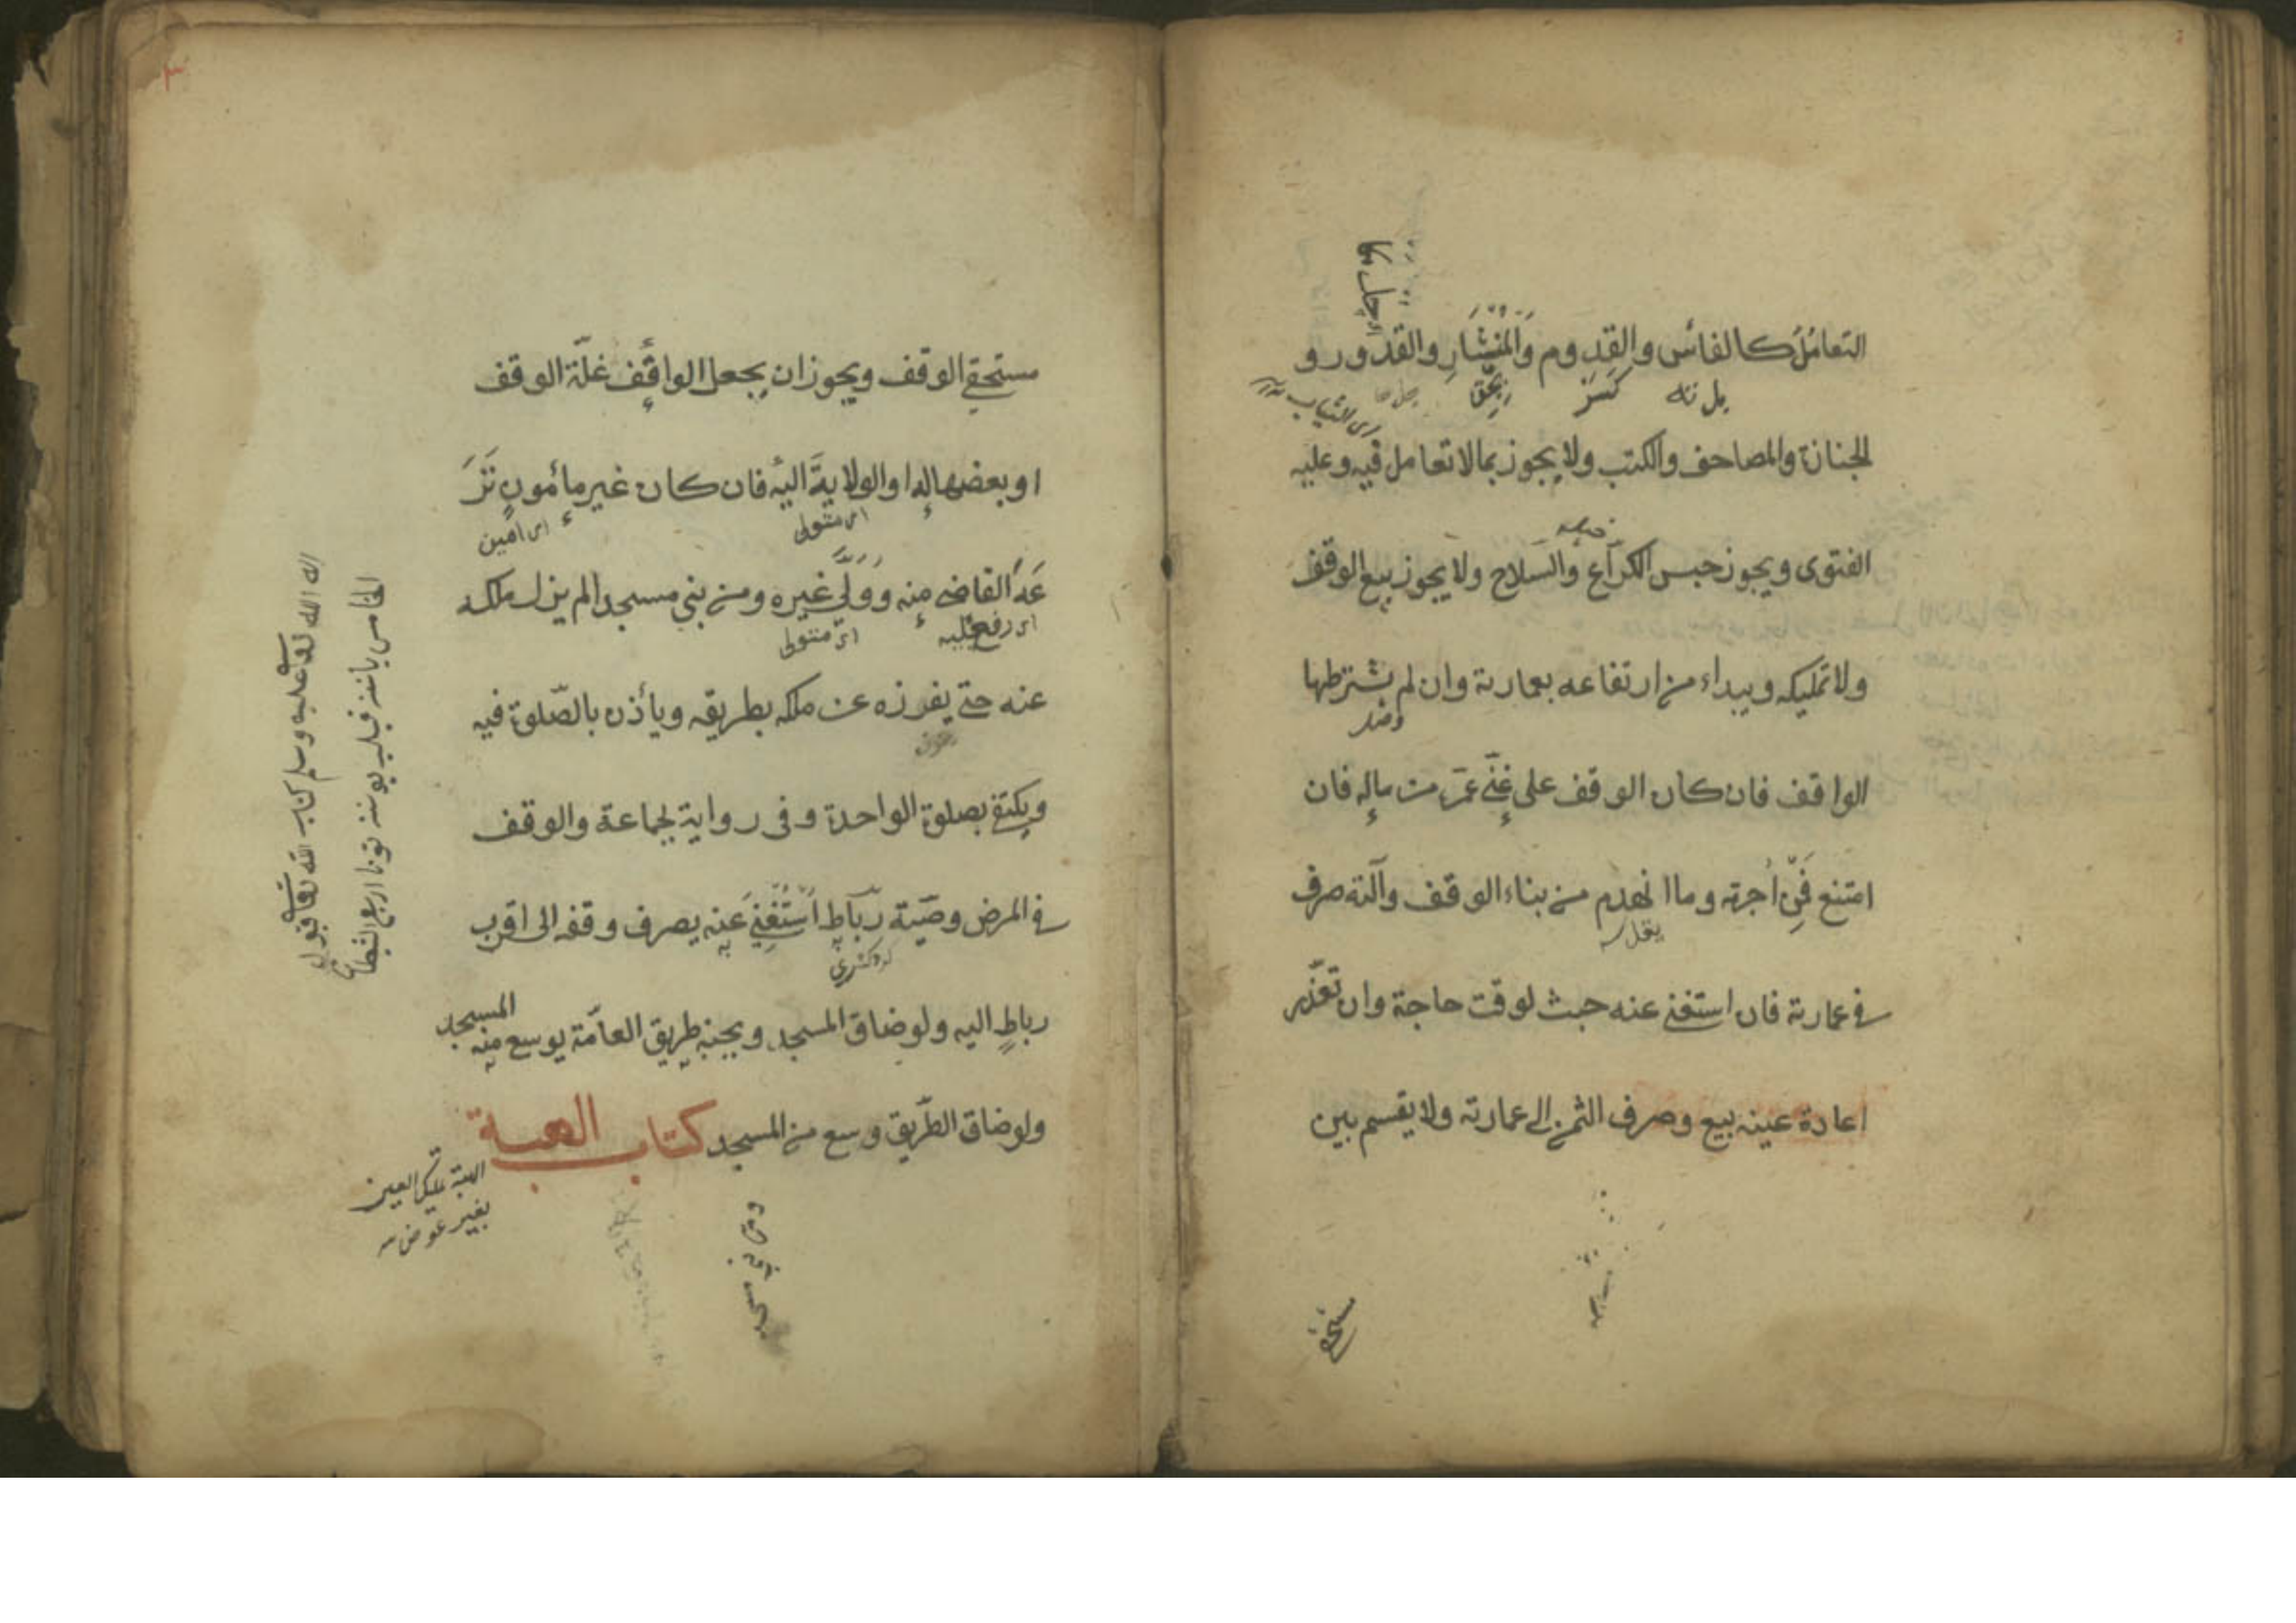 التعامل كالفأس والقدوم والمنشار والقدور و
الجنازة والمصاحف والكتب ولا يجوز بما لا تعامل فيه وعليه
الفتوى ويجوز حبس الكراع والسلاح ولا يجوز بيع الوقف
ولا تمليكه ويبداء من ارتفاعه بعمارته وان لم يشترطها
الواقف فان كان الوقف على غني عمر من ماله فان
امتنع فمن أجرته وما انهدم من بناء الوقف وآلته صرف
في عمارته فان استغنى عنه حبث لوقت حاجة وان تعذر
اعادة عينه بيع وصرف الثمن الى عمارته ولا يقسم بين
مستحقي
مستحقي الوقف ويجوز ان يجعل الواقف غلّة الوقف
او بعضها له او الولاية اليه فان كان غير مأمون نَزَ
اى متولى
اى امين
عَهُ القاضي منه وولّى غيره ومن بنى مسجدا لم يزل ملكه
اى متولى
عنه حتى يفرزه عن ملكه بطريقه ويأذن بالصّلوة فيه
ويكتفى بصلوة الواحدة وفى رواية لجماعة والوقف
في المرض وصيّة رباط استغني عنه يصرف وقفه الى اقرب
رباط اليه ولو ضاق المسجد وبجنبه طريق العامّة يوسع منه المسجد
ولو ضاق الطّريق وسع من المسجد كتاب الهبة
الهبة تمليك العين
بغير عوض